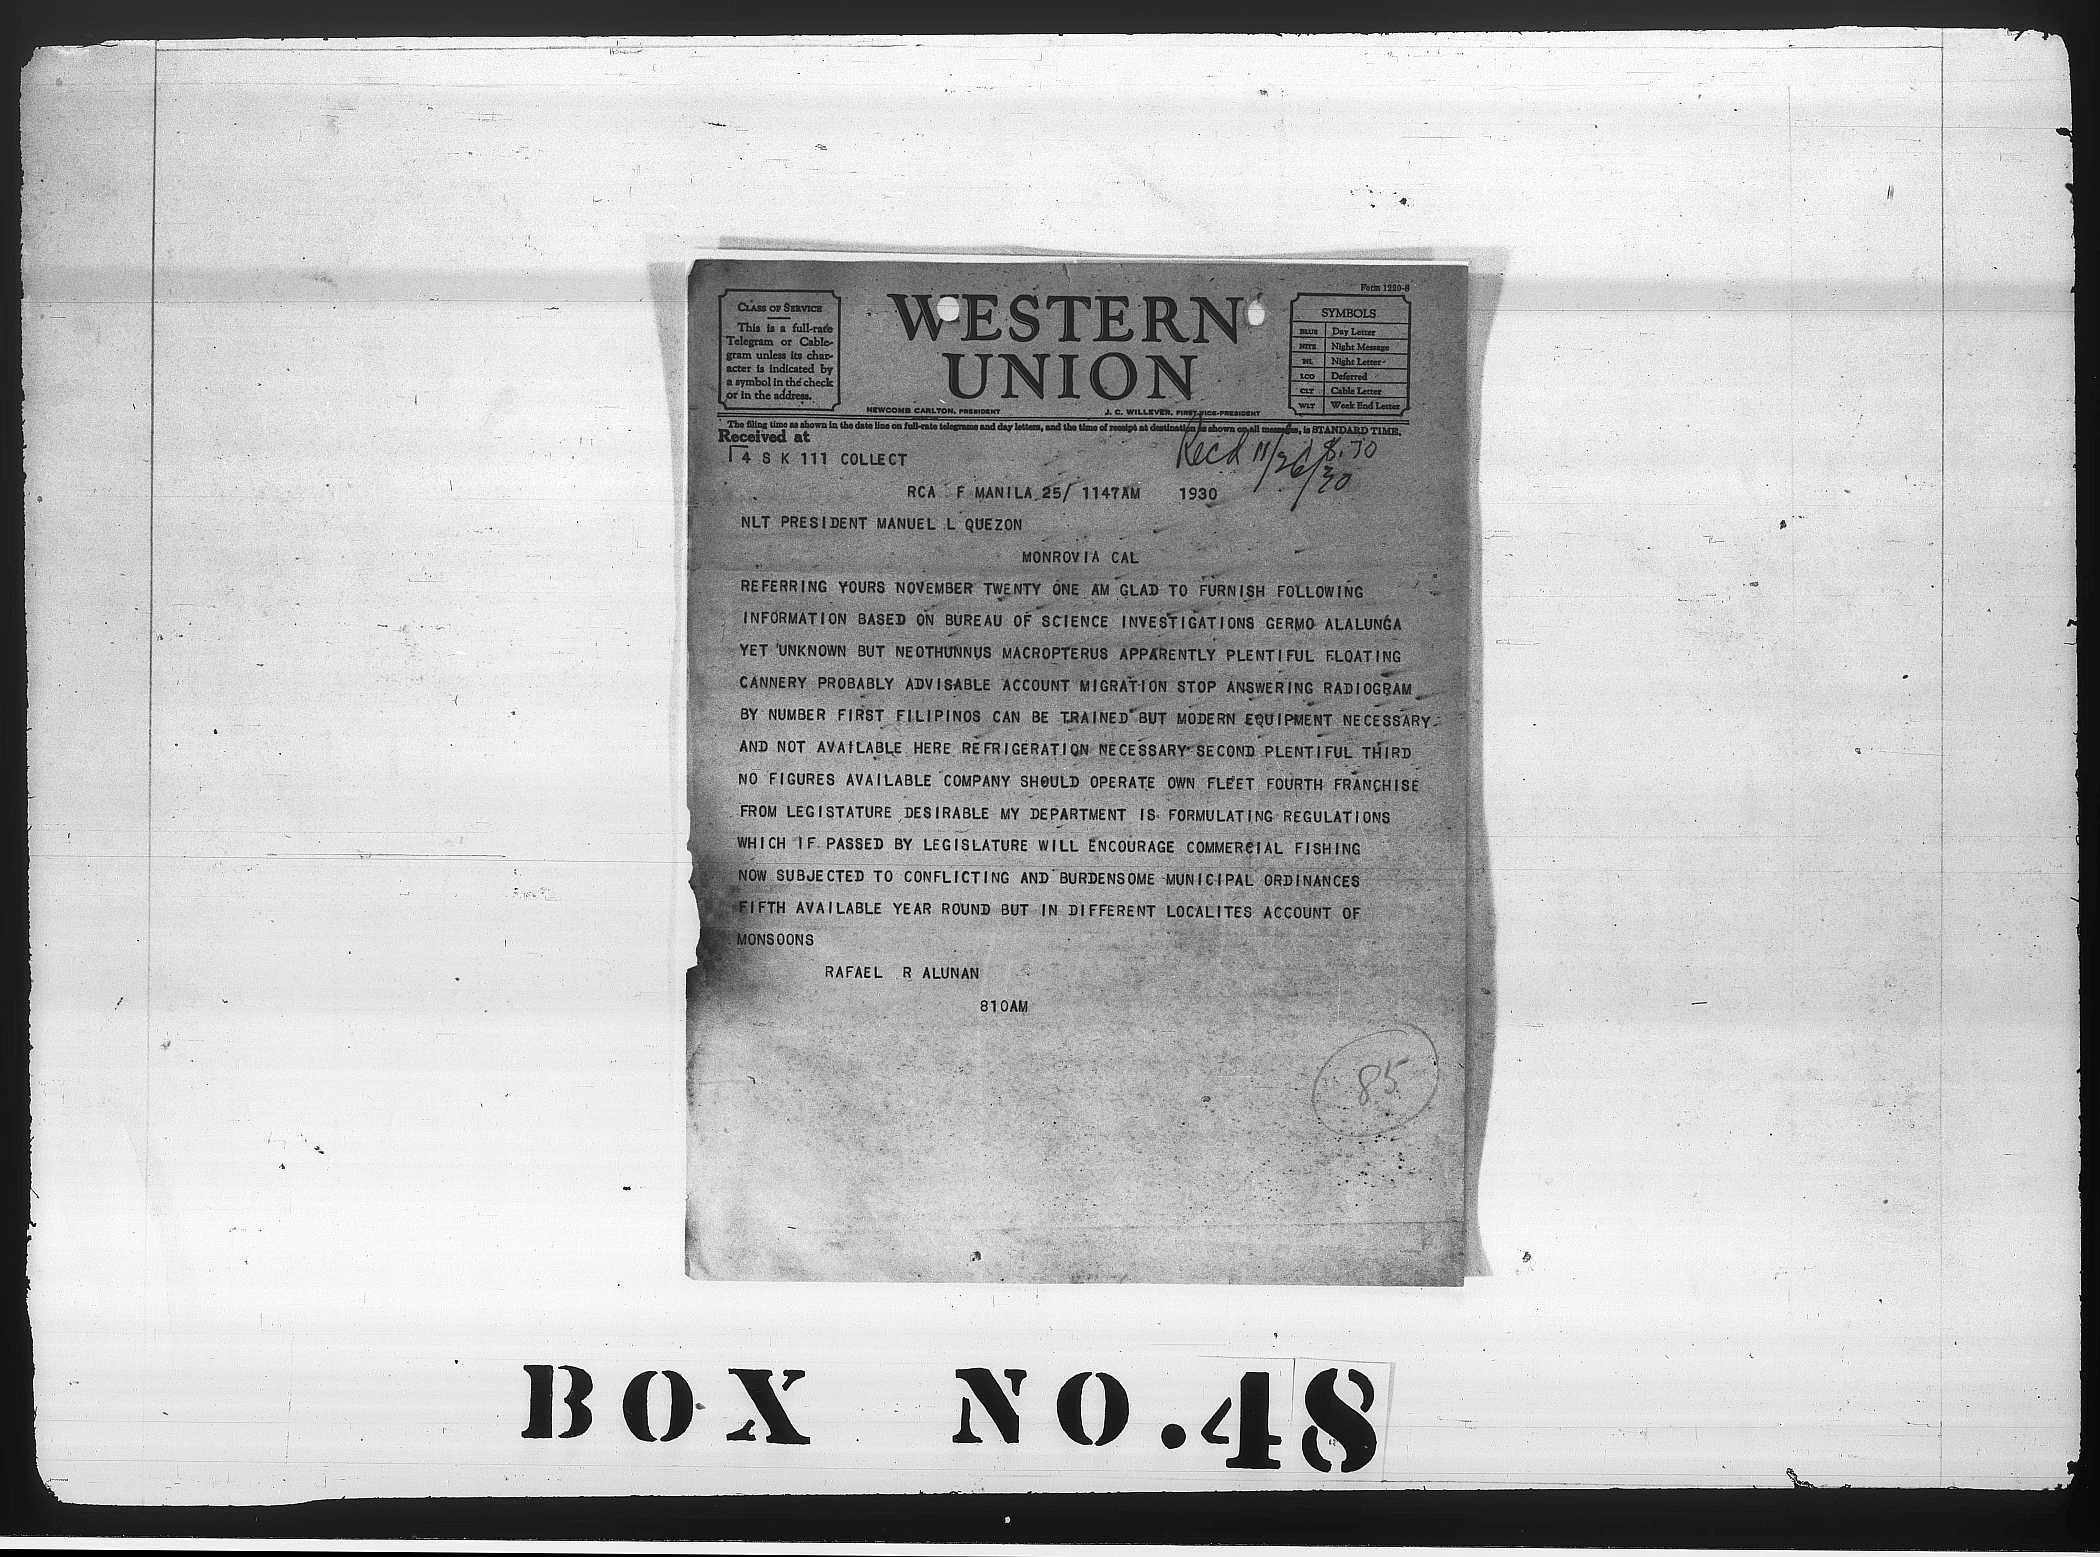 Form 1220-B
CLASS OF SERVICE
This is a full-rate
Telegram or Cable-
gram unless its char-
acter is indicated by
a symbol in the check
or in the address.
WESTERN
UNION
NEWCOMB CARLTON, PRESIDENT
J. C. WILLEVER, FIRST VICE-PRESIDENT
SYMBOLS
BLUE Day Letter
NITE Night Message
NL Night Letter
LCO Deferred
CLT Cable Letter
WLT Week End Letter
The filing time as shown in the date line on full-rate telegrams and day letters, and the time of receipt at destination as shown on all messages, is STANDARD TIME.
Received at
Recd 11/26/30 8.30
4 S K 111 COLLECT
RCA F MANILA 25/ 1147AM 1930
NLT PRESIDENT MANUEL L QUEZON
MONROVIA CAL
REFERRING YOURS NOVEMBER TWENTY ONE AM GLAD TO FURNISH FOLLOWING
INFORMATION BASED ON BUREAU OF SCIENCE INVESTIGATIONS GERMO ALALUNGA
YET UNKNOWN BUT NEOTHUNNUS MACROPTERUS APPARENTLY PLENTIFUL FLOATING
CANNERY PROBABLY ADVISABLE ACCOUNT MIGRATION STOP ANSWERING RADIOGRAM
BY NUMBER FIRST FILIPINOS CAN BE TRAINED BUT MODERN EQUIPMENT NECESSARY
AND NOT AVAILABLE HERE REFRIGERATION NECESSARY SECOND PLENTIFUL THIRD
NO FIGURES AVAILABLE COMPANY SHOULD OPERATE OWN FLEET FOURTH FRANCHISE
FROM LEGISTATURE DESIRABLE MY DEPARTMENT IS FORMULATING REGULATIONS
WHICH IF PASSED BY LEGISLATURE WILL ENCOURAGE COMMERCIAL FISHING
NOW SUBJECTED TO CONFLICTING AND BURDENSOME MUNICIPAL ORDINANCES
FIFTH AVAILABLE YEAR ROUND BUT IN DIFFERENT LOCALITES ACCOUNT OF
MONSOONS
RAFAEL R ALUNAN
810AM
85
BOX NO.48